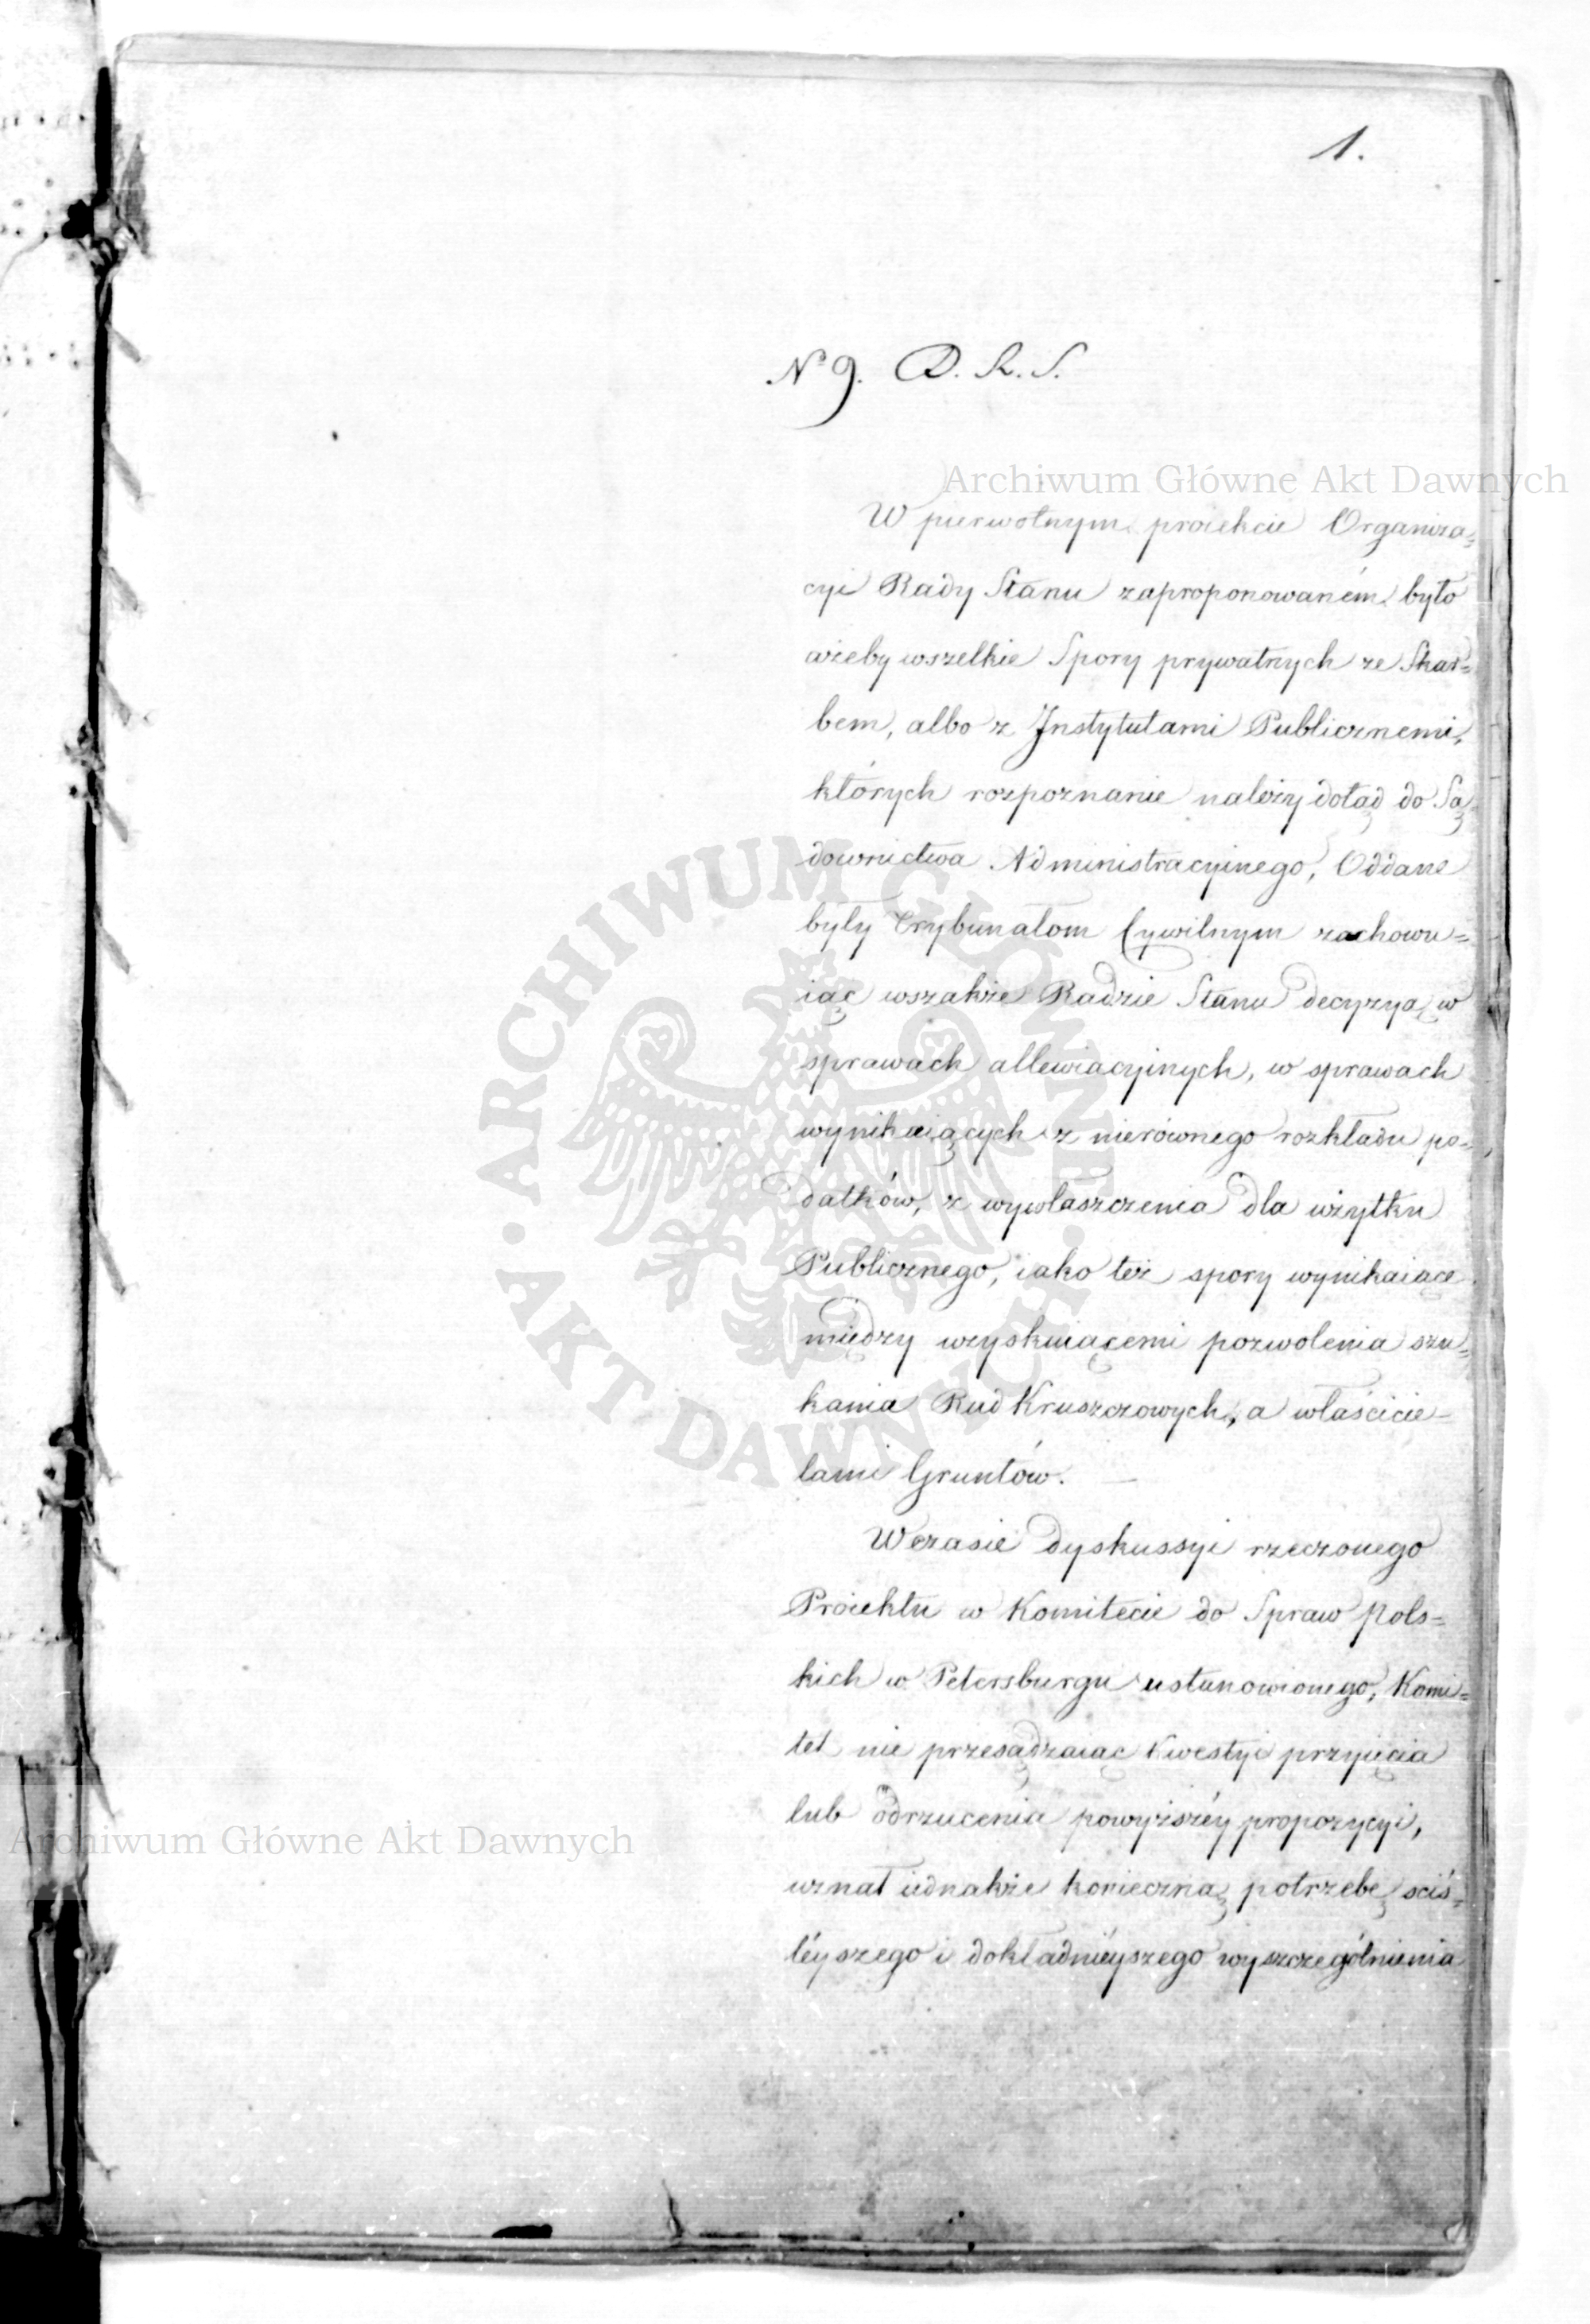 1.
N° 9. D. R. S.
Archiwum Główne Akt Dawnych
W pierwotnym proiekcie Organiza=
cyi Rady Stanu zaproponowaném było
ażeby wszelkie Spory prywatnych ze Skar=
bem, albo z Jnstytutami Publicznemi,
których rozpoznanie należy dotąd do Są=
downictwa Administracyinego, Oddane
były Trybunałom Cywilnym zachowu=
iąc wszakże Radzie Stanu decyzyą w
sprawach allewiacyinych, w sprawach
wynikaiących z nierównego rozkładu po=
datków, z wywłaszczenia dla użytku
Publicznego, iako też spory wynikaiące
między uzyskuiącemi pozwolenia szu=
kania Rud Kruszczowych, a właścicie=
lami Gruntów. —
W czasie dyskussyi rzeczonego
Proiektu w Komitecie do Spraw Pols=
kich w Petersburgu ustanowionego, Komi=
tet nie przesądzaiąc Kwestyi przyięcia
lub odrzucenia powyższéy propozycyi,
uznał iednakże konieczną potrzebę sciś=
léyszego i dokładniéyszego wyszczególnienia
ARCHIWUM GŁÓWNE • AKT DAWNYCH •
Archiwum Główne Akt Dawnych